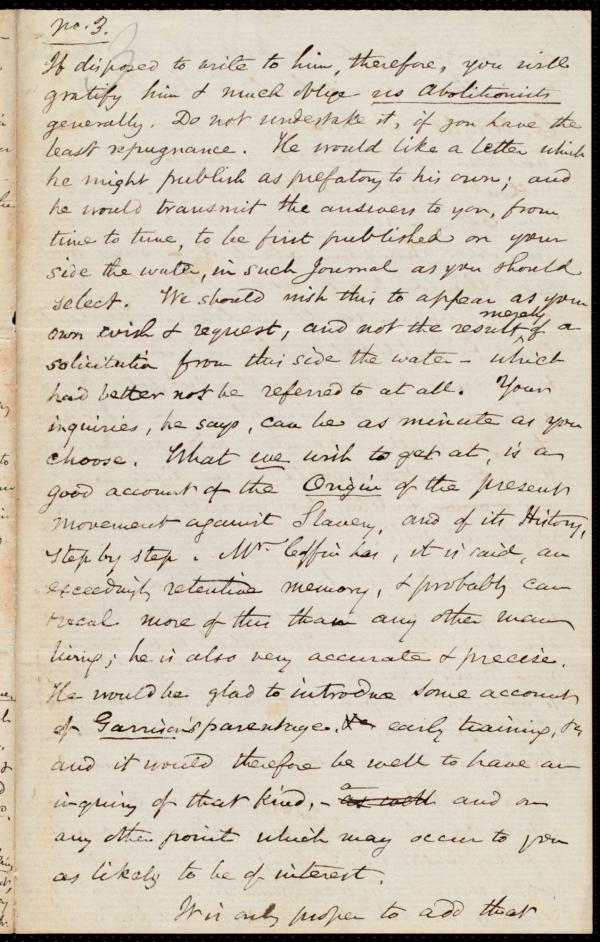 no. 3.
If disposed to write to him, therefore, you will
gratify him & much oblige us Abolitionists
generally. Do not undertake it, if you have the
least repugnance. He would like a letter which
he might publish as prefatory to his own; and
he would transmit the answers to you, from
time to time, to be first published on your
side the water, in such Journal as you should
select. We should wish this to appear as your
own wish & request, and not the result merely of a
solicitation from this side the water – which
had better not be referred to at all. Your
inquiries, he says, can be as minute as you
choose. What we wish to get at, is a
good account of the Origin of the present
movement against Slavery, and of its History,
step by step. Mr. Coffin has, it is said, an
exceedingly retentive memory, & probably can
recal more of this than any other man
living; he is also very accurate & precise.
He would be glad to introduce some account
of Garrison's parentage, early training, &c
and it would therefore be well to have an
inquiry of that kind, – as well and on
any other point which may occur to you
as likely to be of interest.
It is only proper to add that